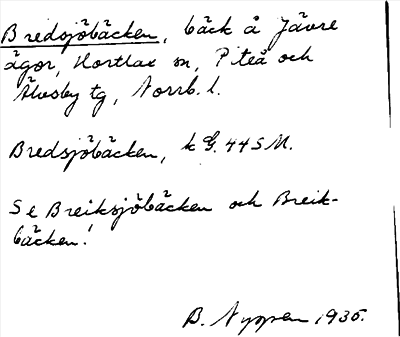 Bredsjöbäcken, bäck å Jävre
ägor, Hortlax sn, Piteå och
Älvsby tg, Norrb. l.
Bredsjöbäcken, k G. 44 S M.
Se Breiksjöbäcken och Breik-
bäcken!
B. Nyppen 1935.